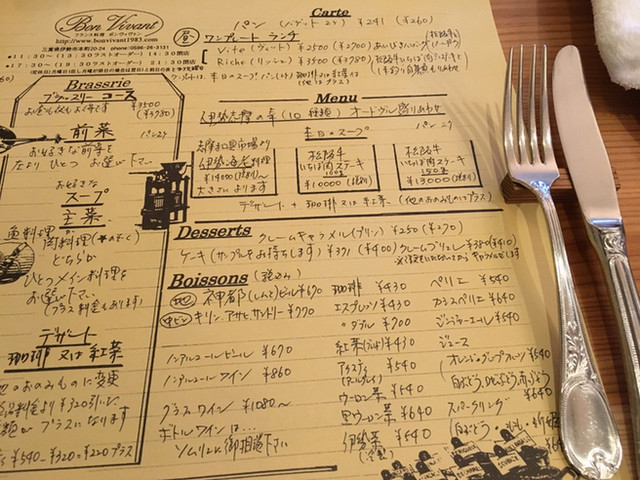 Bon Vivant
フランス料理 ボンヴィヴァン
http://www.bonvivant1983.com
三重県伊勢市本町20-24 phone:0596-26-3131
Carte
パン (バゲット 2ケ) ¥241 (¥260)
昼 ワンプレート ランチ
Vite (ヴィット) ¥2500 (¥2700)
Riche (リッシュ) ¥3500 (¥3780)
Brasserie
ブラッスリー コース
¥3500
(¥3780)
前菜
パン2ケ
お好きな前菜を
左より ひとつ お選び下さい
お好きな
スープ
主菜
魚料理 肉料理
どちらか
ひとつ メイン料理を
お選び下さい
(プラス料金もあります)
デザート
珈琲 又は 紅茶
他のおのみものに変更
¥540-¥320=¥220プラス
Menu
伊勢志摩の幸 (10種類) オードヴル盛りあわせ
本日のスープ パン2ケ
伊勢海老料理
¥14000 (税別)~
大きさによります
松阪牛
いちぼ肉ステーキ
100g
¥10000 (税別)
松阪牛
いちぼ肉ステーキ
150g
¥13000 (税別)
デザート + 珈琲 又は 紅茶 (他のおのみものはプラス)
Desserts クレームキャラメル (プリン) ¥250 (¥270)
ケーキ (サンプルをお持ちします) ¥371 (¥400) クレームブリュレ ¥380 (¥410)
Boissons (税込み)
地ビ 神都(しんと)ビール ¥690
中ビン キリン, アサヒ, サントリー ¥770
ノンアルコールビール ¥670
ノンアルコール ワイン ¥860
グラスワイン ¥1080~
ボトルワインは...
ソムリエに御相談下さい
珈琲 ¥430
エスプレッソ ¥430
〃 ダブル ¥700
紅茶 ¥430
アイスティ ¥540
ウーロン茶 ¥540
黒ウーロン茶 ¥640
伊勢茶 ¥540
ペリエ ¥540
ガラスペリエ ¥640
ジンジャーエール ¥540
ジュース
(オレンジ, グレープフルーツ ¥540
スパークリング